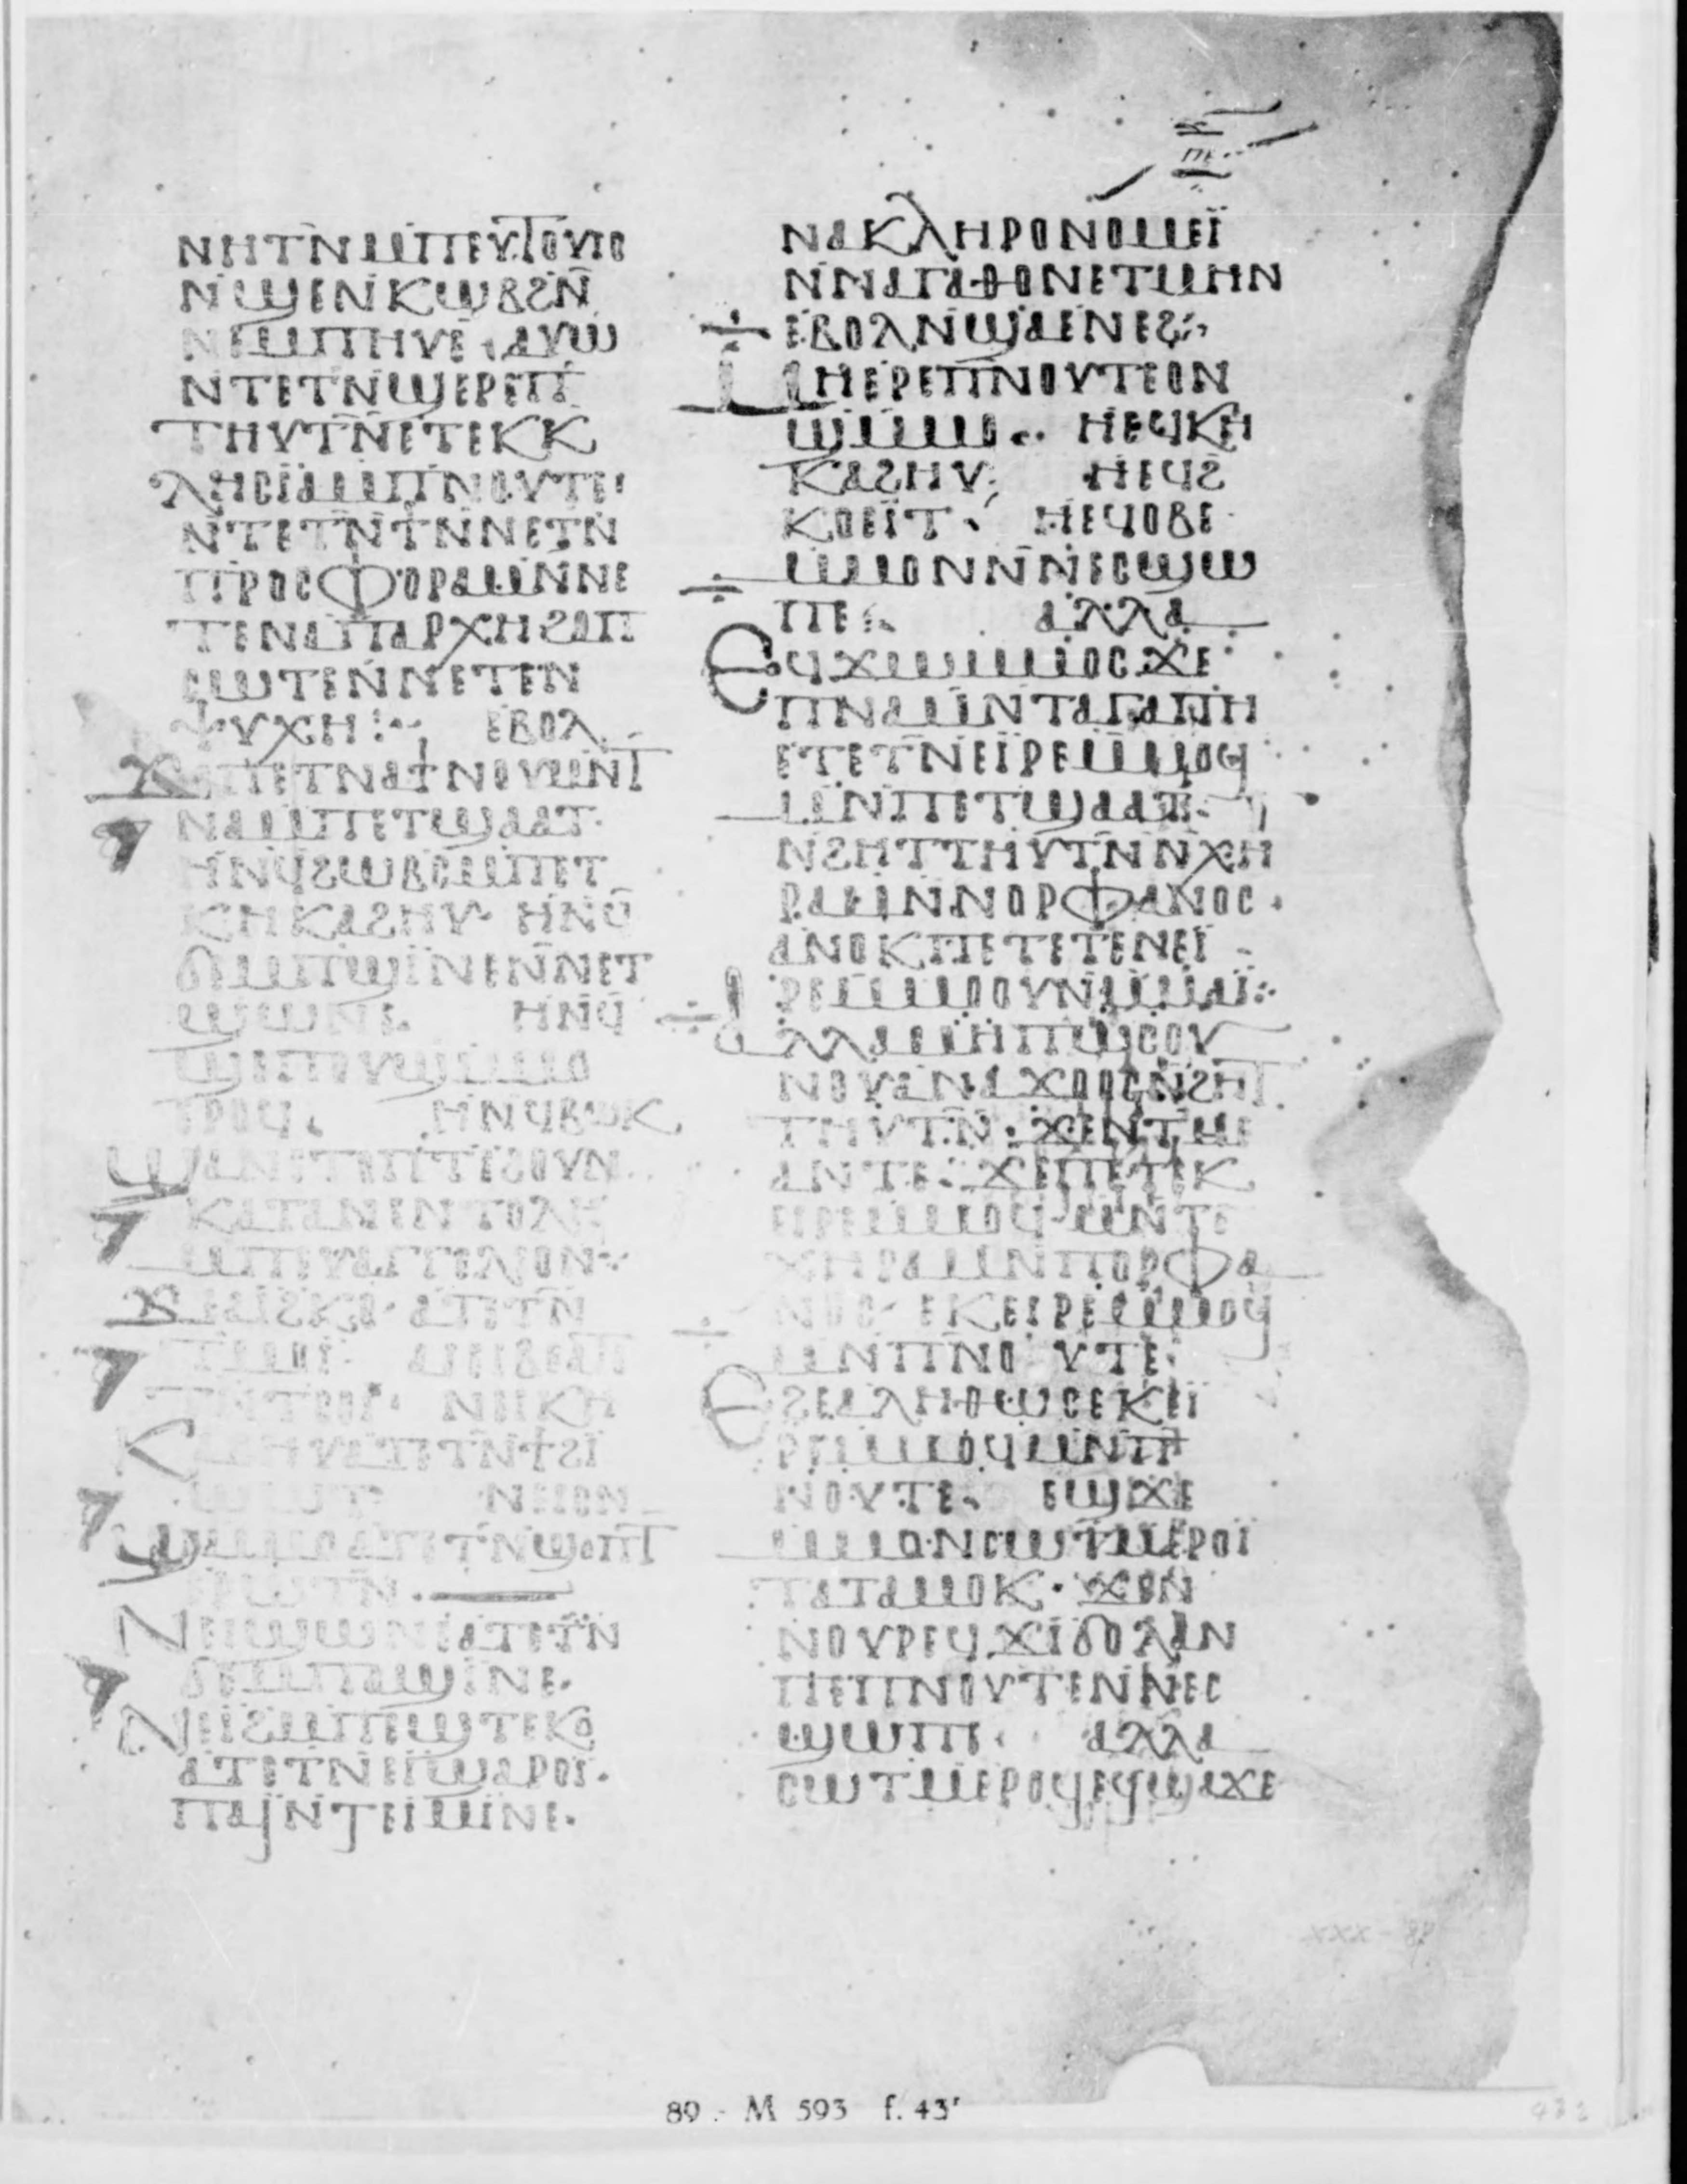 ⲡⲉ
ⲛⲏⲧⲛⲙⲡⲉⲩⲧⲟⲩⲓⲟ
ⲛϣⲉⲛⲕⲱⲃϩⲛ̄
ⲛⲉⲙⲡⲏⲩⲉ· ⲁⲩⲱ
ⲛⲧⲉⲧⲛϣⲉⲣⲉⲡ
ⲧⲏⲩⲧⲛ̄ⲉⲧⲉⲕⲕ
ⲗⲏⲥⲓ̈ⲁⲙⲡⲛⲟⲩⲧⲉ·
ⲛⲧⲉⲧⲛ̄ϯⲛⲛⲉⲧⲛ̄
ⲡⲣⲟⲥⲫⲟⲣⲁⲙⲛ̄ⲛⲉ
ⲧⲉⲛⲁⲡⲁⲣⲭⲏϩⲁⲡ
ⲥⲱⲧⲉⲛ̄ⲛⲉⲧⲉⲛ
ⲯⲩⲭⲏ:~ ⲉⲃⲟⲗ
ϫⲉⲡⲉⲧⲛⲁϯⲛⲟⲩⲙⲛ̄ⲧ
ⲛⲁⲙⲡⲉⲧϣⲁⲁⲧ·
ⲏⲛϥϩⲱⲃⲥⲙⲡⲉⲧ
ⲕⲏⲕⲁϩⲏⲩ· ⲏⲛϥ̄
ϭⲙⲡϣⲓⲛⲉⲛ̄ⲛⲉⲧ
ϣⲱⲛⲉ· ⲏⲛϥ̄
ϣⲉⲡⲟⲩϣⲙⲙⲟ
ⲉⲣⲟϥ· ⲏⲛϥⲃⲱⲕ
ϣⲁⲛⲉⲧⲉⲡⲉⲧⲉϩⲟⲩⲛ
ⲕⲁⲧⲁⲛⲉⲛⲧⲟⲗⲏ
ⲙⲡⲉⲩⲁⲅⲅⲉⲗⲓⲟⲛ·
ϫⲉⲁⲓ̈ϩⲕⲟ· ⲁⲧⲉⲧⲛ̄
ⲧⲙⲙⲟⲓ̈· ⲁⲓⲉⲓⲃⲉⲁⲧⲉ
ⲧⲛ̄ⲧⲥⲟⲓ̈· ⲛⲉⲓⲕⲏ
ⲕⲁϩⲏⲩⲁⲧⲉⲧⲛ̄ϯϩⲓ̈
ⲱⲱⲧ· ⲛⲉⲓⲟⲛ
ϣⲙⲙⲟⲁⲧⲉⲧⲛ̄ϣⲟⲡⲧ
ⲉⲣⲱⲧⲛ̄·
ⲛⲉⲓϣⲱⲛⲉⲁⲧⲉⲧⲛ̄
ϭⲉⲙⲡⲁϣⲓⲛⲉ·
ⲛⲉⲓϩⲙⲡⲉϣⲧⲉⲕⲟ
ⲁⲧⲉⲧⲛⲉⲓϣⲁⲣⲟⲓ̈·
ⲡⲁⲓ̈ⲛ̄ⲧⲉⲓⲙⲓⲛⲉ·
ⲛⲁⲕⲗⲏⲣⲟⲛⲟⲙⲉⲓ̈
ⲛ̄ⲛⲁⲅⲁⲑⲟⲛⲉⲧⲙⲏⲛ
ⲉⲃⲟⲗⲛ̄ϣⲁⲉⲛⲉϩ:~
ⲙⲏⲉⲣⲉⲡⲛⲟⲩⲧⲉⲟⲛ
ϣⲙⲙⲟ·· ⲏⲉϥⲕⲏ
ⲕⲁϩⲏⲩ: ⲏⲉϥϩ
ⲕⲟⲉⲓ̈ⲧ· ⲏⲉϥⲟⲃⲉ
ⲙⲙⲟⲛⲛ̄ⲛⲉⲥϣⲱ
ⲡⲉ: ⲁⲗⲗⲁ
ⲉϥϫⲱⲙⲙⲟⲥϫⲉ
ⲡⲛⲁⲙⲛ̄ⲧⲁⲅⲁⲡⲏ
ⲉⲧⲉⲧⲛ̄ⲉⲓ̈ⲣⲉⲙⲙⲟϥ
ⲙⲛⲡⲉⲧϣⲁⲁⲧ·
ⲛϩⲏⲧⲧⲏⲩⲧⲛ̄ⲛⲭⲏ
ⲣⲁⲙⲛ̄ⲛⲟⲣⲫⲁⲛⲟⲥ·
ⲁⲛⲟⲕⲡⲉⲧⲉⲧⲉⲛⲉⲓ̈
ⲣⲉⲙⲙⲟⲟⲩⲛⲙⲙⲁⲓ̈:
ⲁⲗⲗⲁⲙⲏⲡⲱⲥⲟⲩ
ⲛⲟⲩⲁⲛⲁϫⲟⲟⲥⲛ̄ϩⲏⲧ
ⲧⲏⲩⲧⲛ̄·ϫⲉⲛⲧⲙⲉ
ⲁⲛⲧⲉ: ϫⲉⲡⲉⲧⲉⲕ
ⲉⲓⲣⲉⲙⲙⲟϥⲙⲛⲧⲉ
ⲭⲏⲣⲁⲙⲛⲡⲟⲣⲫⲁ
ⲛⲟⲥ· ⲉⲕⲉⲓⲣⲉⲙⲙⲟϥ
ⲙⲛⲡⲛⲟⲩⲧⲉ·
ⲉϩⲉⲁⲗⲏⲑⲱⲥⲉⲕⲉⲓ̈
ⲣⲉⲙⲙⲟϥⲙⲛⲡ
ⲛⲟⲩⲧⲉ· ⲉϣϫⲉ
ⲙⲙⲟⲛⲥⲱⲧⲙⲉⲣⲟⲓ̈
ⲧⲁⲧⲁⲙⲟⲕ· ϫⲉⲛ
ⲛⲟⲩⲣⲉϥϫⲓϭⲟⲗⲁⲛ
ⲡⲉⲡⲛⲟⲩⲧⲉⲛ̄ⲛⲉⲥ
ϣⲱⲡⲉ· ⲁⲗⲗⲁ
ⲥⲱⲧⲙⲉⲣⲟϥⲉϥϣⲁϫⲉ
89 - M 593 f. 43ʳ